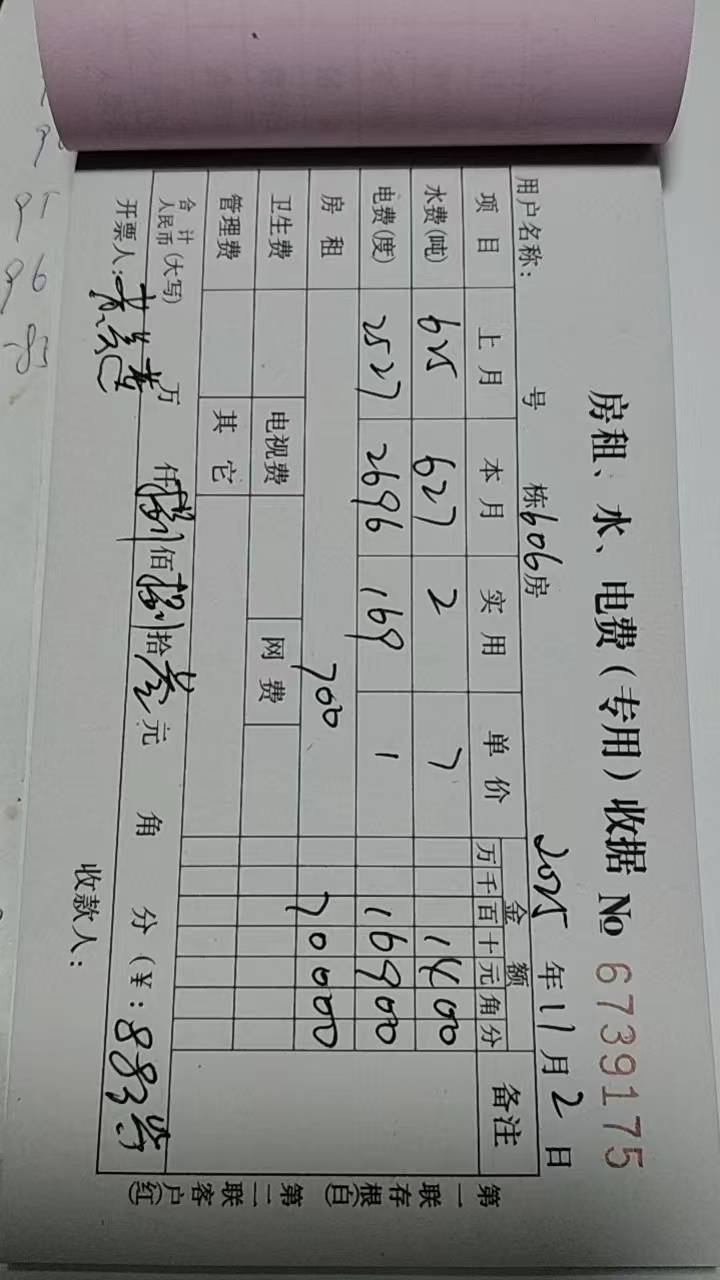 房租、水、电费(专用)收据 № 6739175
用户名称: 号 栋606房 2025年11月2日
项目 上月 本月 实用 单价 金额 备注
万 千 百 十 元 角 分
水费(吨) 625 627 2 7 1400
电费(度) 2527 2696 169 1 16900
房租 700 70000
卫生费 电视费 网费
管理费 其它
合计人民币(大写) 万 仟 捌佰 捌拾 叁元 角 分(¥: 883
开票人: 收款人:
第一联存根(白) 第二联客户(红)
96